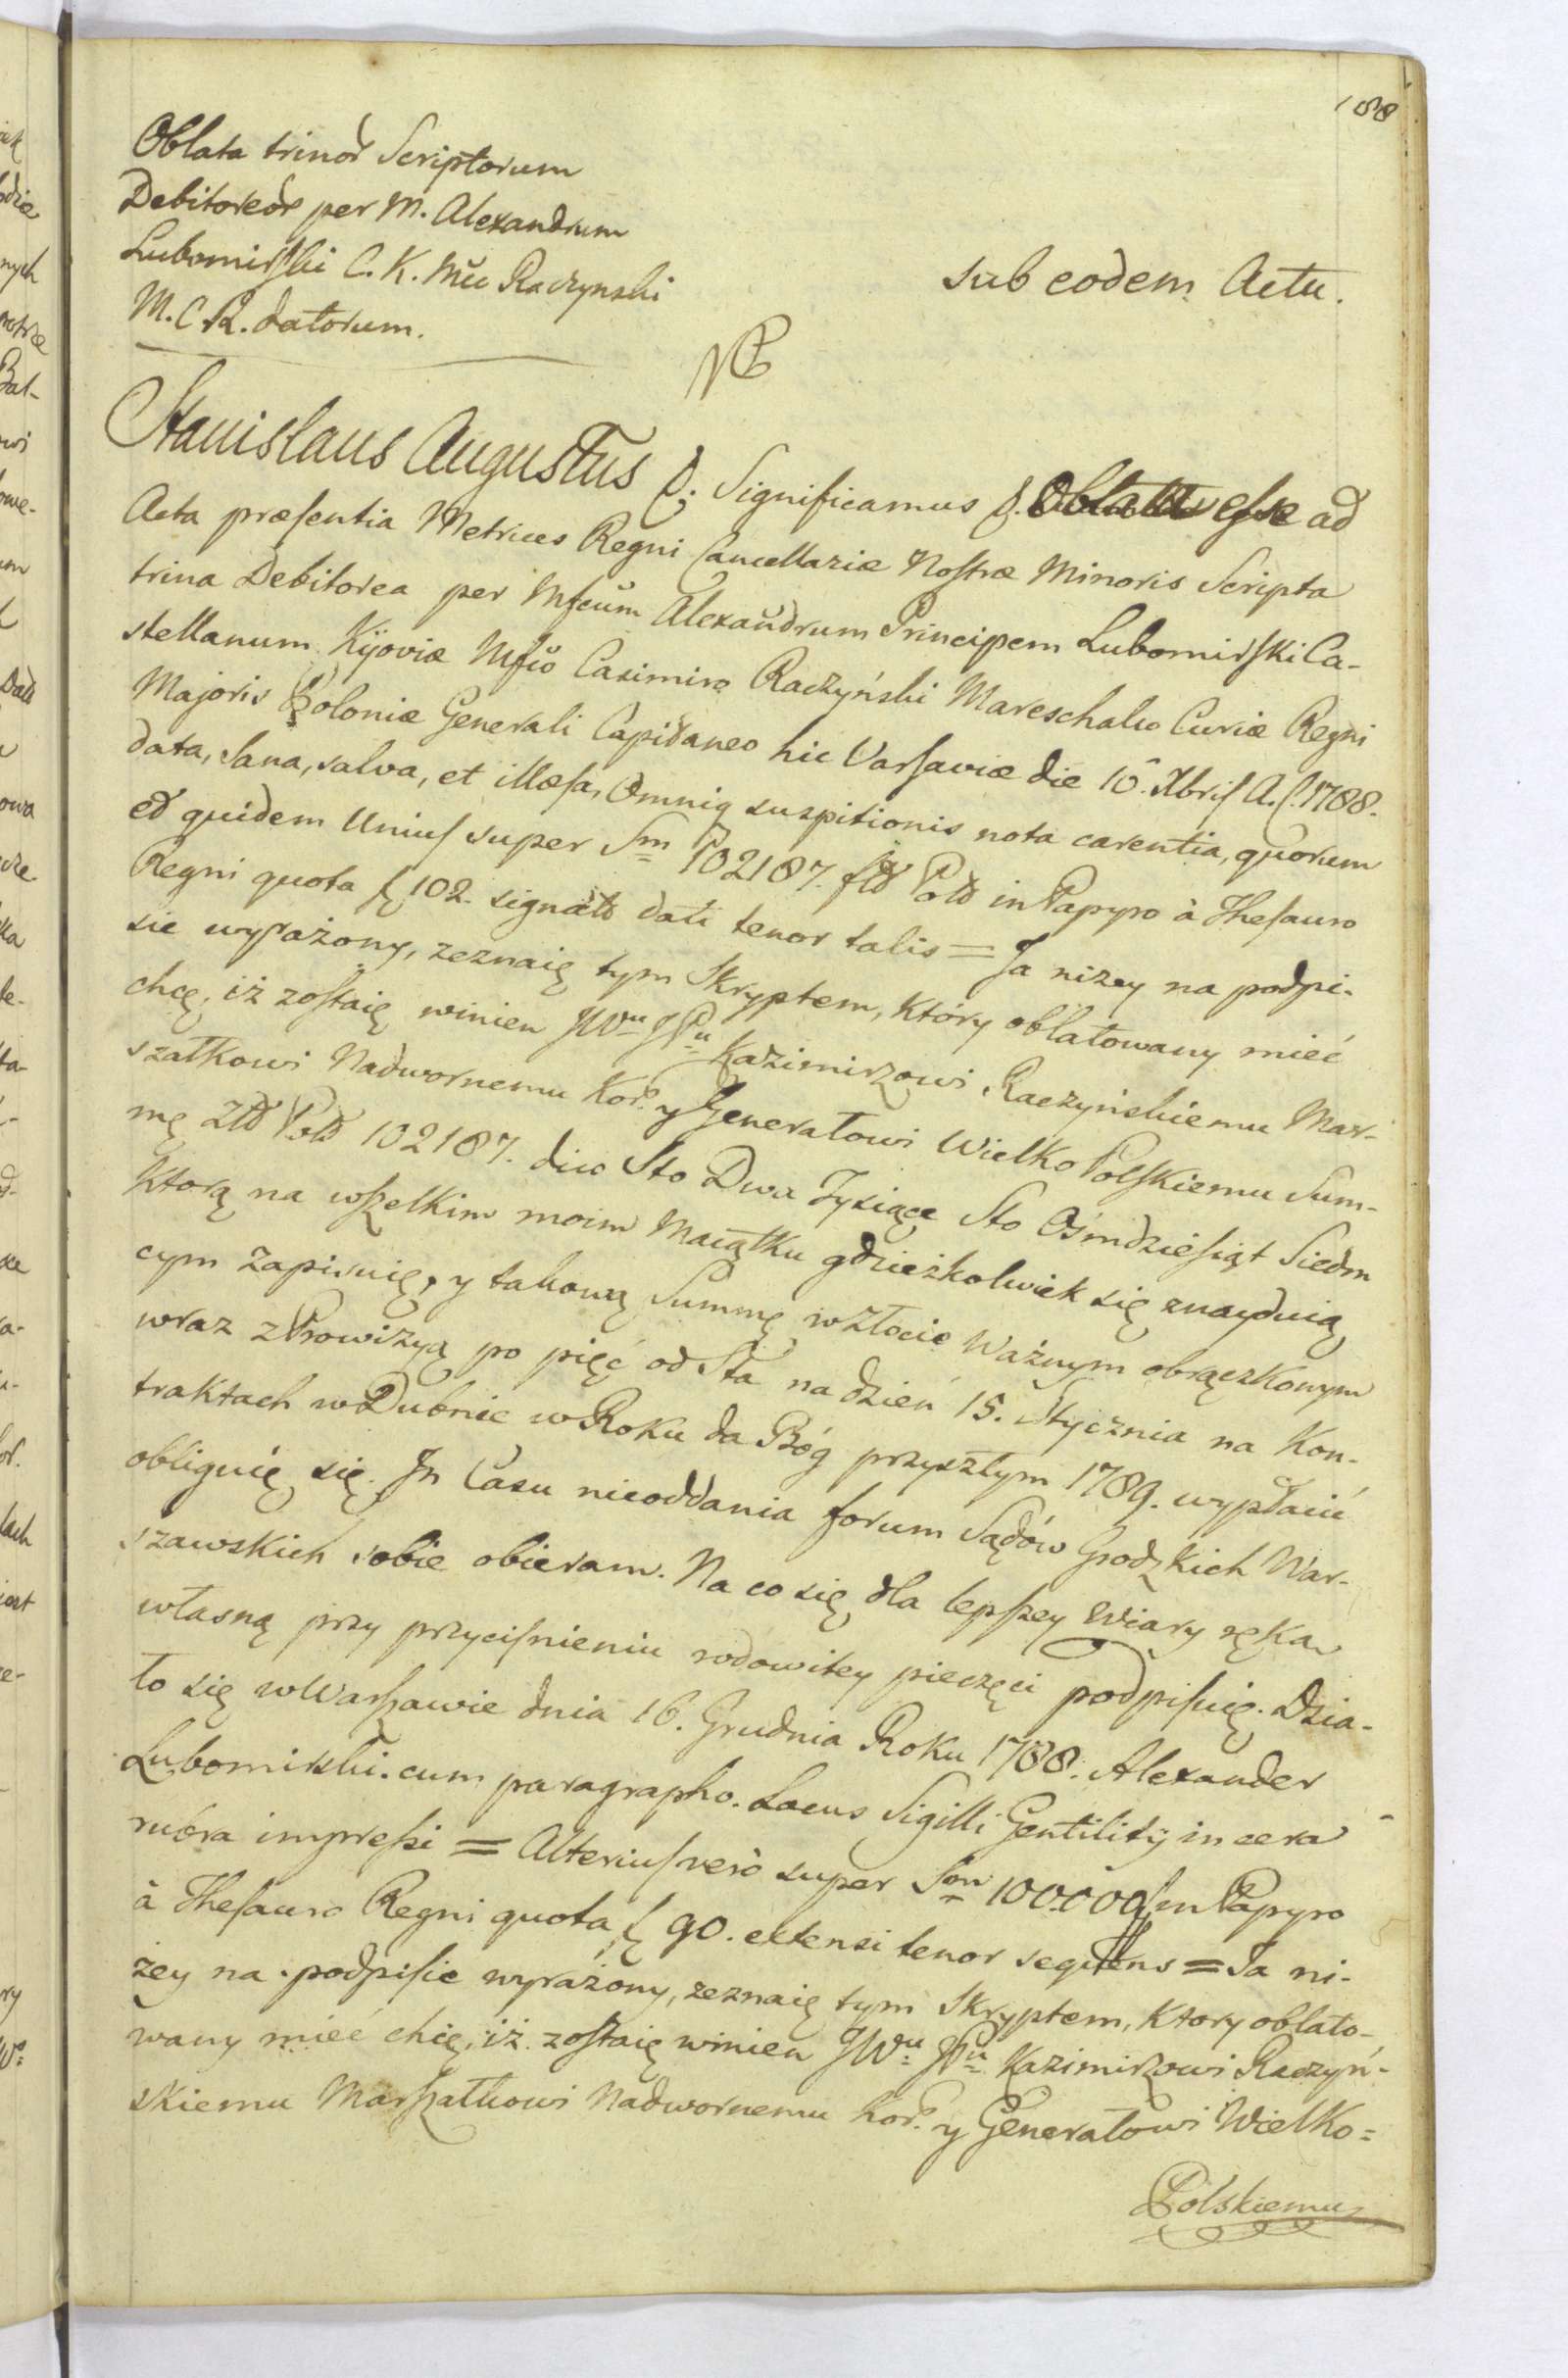 188
Oblata trinor Scriptorum
Debitoreor per M. Alexandrum
Lubomirski C. K. Mco Raczynski
M. C. R. datorum.
sub eodem Actu.
Stanislaus Augustus &. Significamus &. Oblata esse ad
Acta præsentia Metrices Regni Cancellariæ Nostræ Minoris Scripta
trina Debitorea per Mfcum Alexandrum Principem Lubomirski Ca-
stellanum Kijoviæ Mfco Casimiro Raczyński Mareschalco Curiæ Regni
Majoris Poloniæ Generali Capitaneo hic Varsaviæ die 16. Xbris A. C. 1788.
data, sana, salva, et illæsa, Omniq suspitionis nota carentia, quorum
et quidem Unius super Sm 102187. fld Pold in Papyro à Thesauro
Regni quota f 102. signats dati tenor talis = Ja niżey na podpi-
sie wyrażony, zeznaię tym Skryptem, który oblatowany mieć
chcę, iż zostaię winien JWu JPu Kazimirzowi Raczyńskiemu Mar-
szałkowi Nadwornemu Kor. y Generałowi Wielko Polskiemu Sum-
mę Złd Pold 102187. dico Sto Dwa Tysiące Sto Ośmdziesiąt Siedm
Ktorą na wszelkim moim Maiątku gdzieżkolwiek się znayduią
cym zapisuię, y takową Summę w złocie Ważnym obrączkowym
wraz z Prowizyą po pięć od Sta na dzień 15. Stycznia na Kon-
traktach w Dubnie w Roku da Bóg przyszłym 1789. wypłacić
obliguię się. In Casu nieoddania forum Sądów Grodzkich War-
szawskich sobie obieram. Na co się dla lepszey Wiary ręką
własną przy przyciśnieniu rodowitey pieczęci podpisuię. Dzia-
ło się w Warszawie dnia 16. Grudnia Roku 1788. Alexander
Lubomirski. cum paragrapho. Locus Sigilli Gentilitij in cera
rubra impressi = Alterius vero super Sm 100000 f in Papyro
à Thesauro Regni quota f 90. extensi tenor sequens = Ja ni-
żey na podpisie wyrażony, zeznaię tym Skryptem, Ktory oblato-
wany mieć chcę, iż zostaię winien JWu JPu Kazimirzowi Raczyń-
skiemu Marszałkowi Nadwornemu Kor. y Generałowi Wielko=
Polskiemu